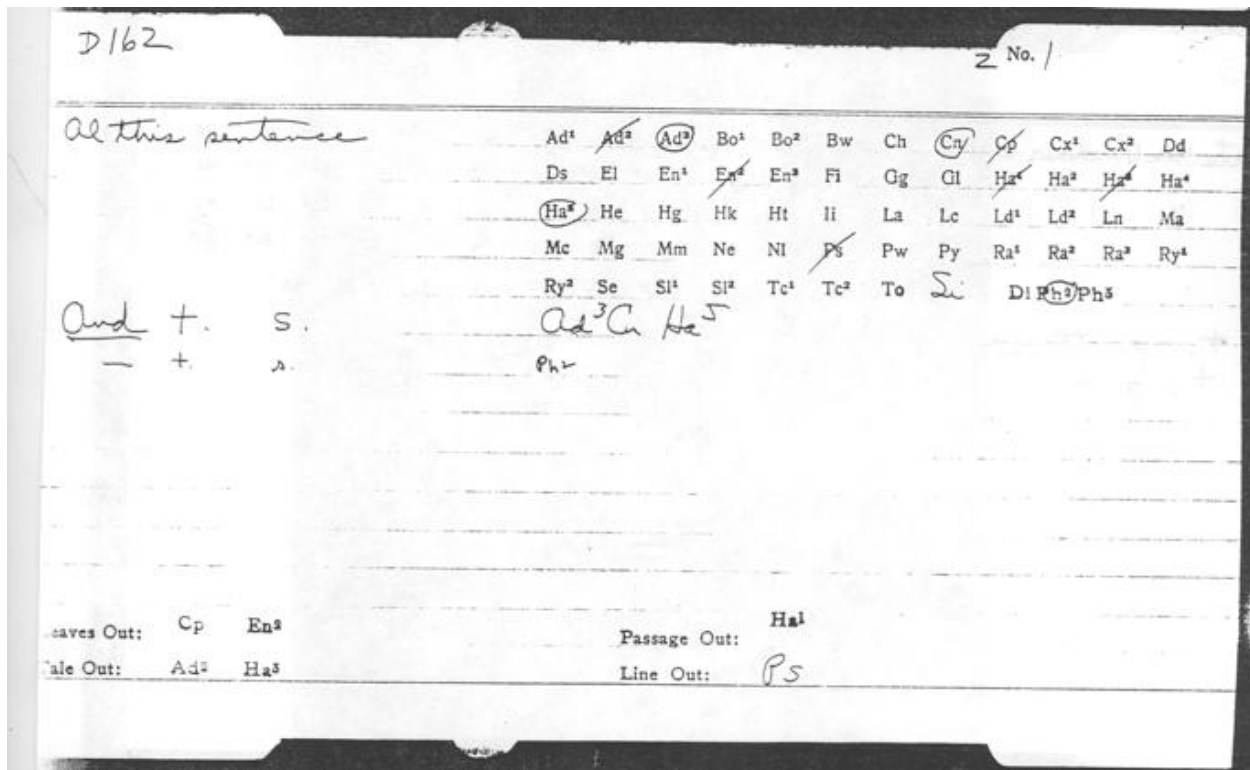 D162
2 No. 1
Al this sentence
Ad¹ Ad² Ad³ Bo¹ Bo² Bw Ch Cn Cp Cx¹ Cx² Dd
Ds El En¹ En² En³ Fi Gg Gl Ha¹ Ha² Ha³ Ha⁴
Ha⁵ He Hg Hk Ht Ii La Lc Ld¹ Ld² Ln Ma
Mc Mg Mm Ne Nl Ps Pw Py Ra¹ Ra² Ra³ Ry¹
Ry² Se Sl¹ Sl² Tc¹ Tc² To Si Dl Ph² Ph³
And +. S. Ad³ Cn Ha⁵
— +. s. Ph²
eaves Out: Cp En² Passage Out: Ha¹
ale Out: Ad² Ha³ Line Out: Ps